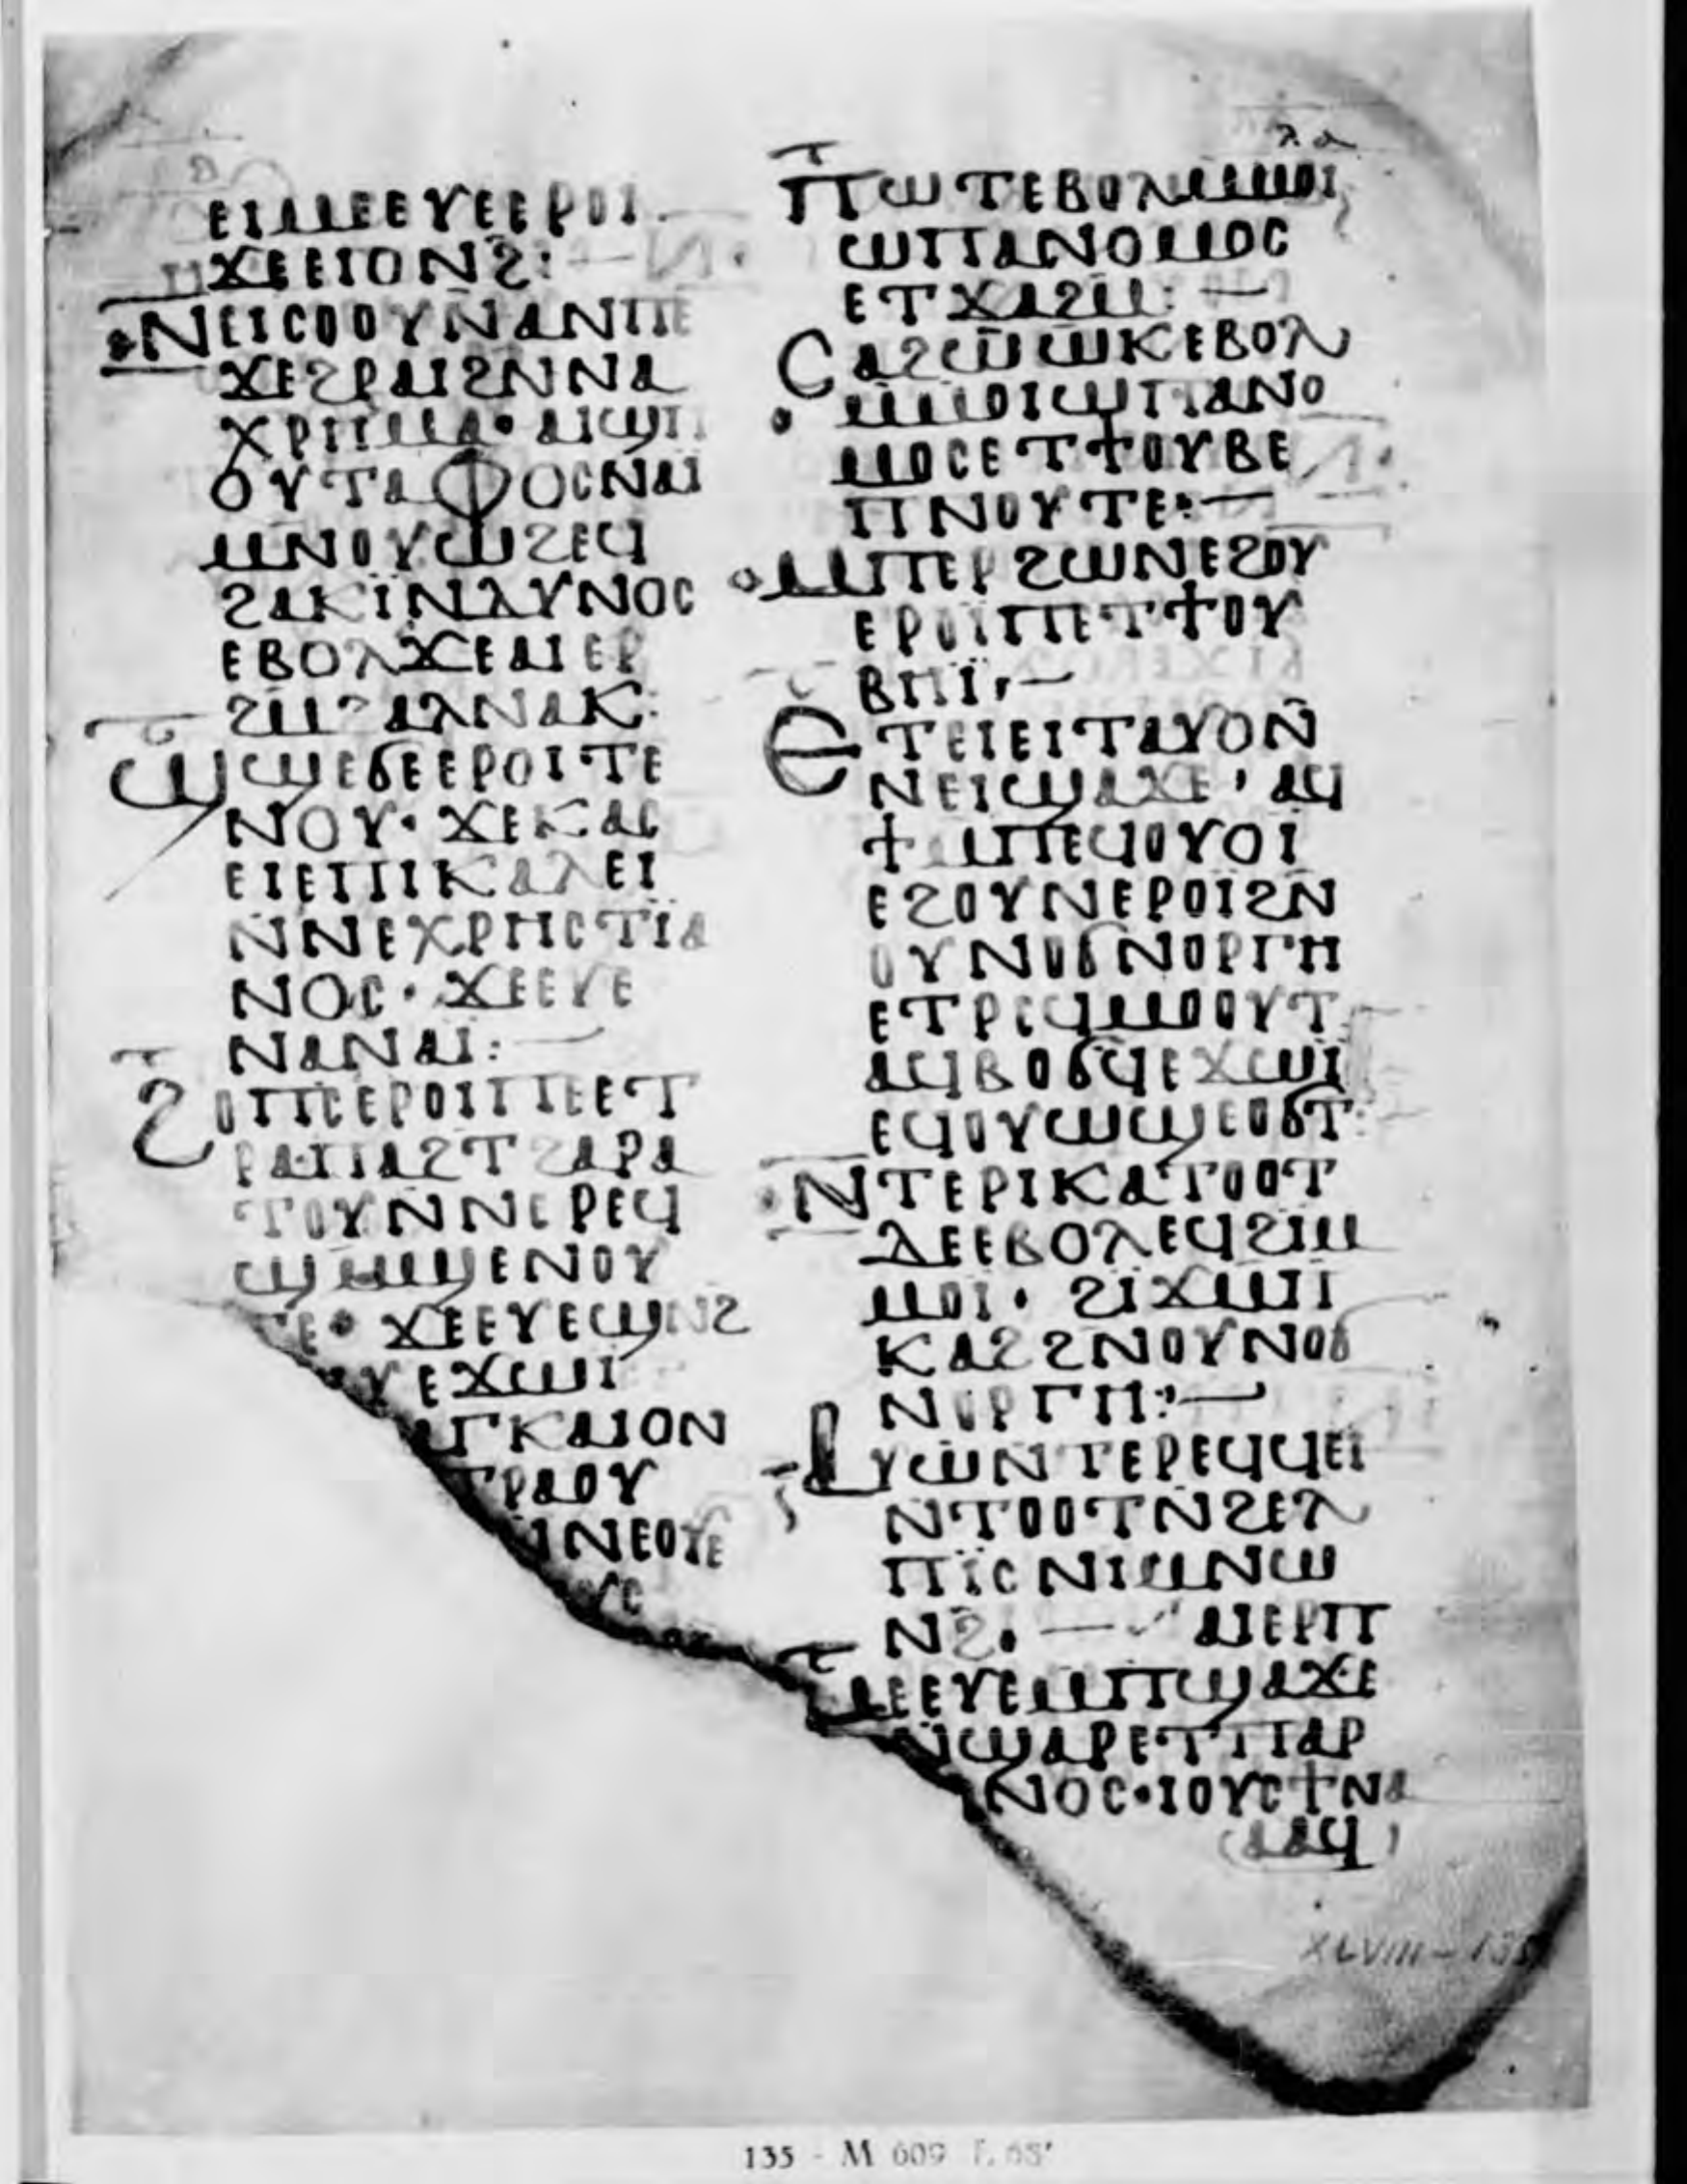 ⲗⲁ
ⲉⲓⲙⲉⲉⲩⲉⲉⲣⲟⲓ
ϫⲉⲉⲓⲟⲛϩ:—
ⲛⲉⲓⲥⲟⲟⲩⲛⲁⲛⲡⲉ
ϫⲉϩⲣⲁⲓϩⲛⲛⲁ
ⲭⲣⲏⲙⲁ·ⲁⲓϣⲡ
ⲟⲩⲧⲁⲫⲟⲥⲛⲁⲓ
ⲙⲛⲟⲩⲱϩⲉϥ
ϩⲁⲕⲓⲛⲇⲩⲛⲟⲥ
ⲉⲃⲟⲗϫⲉⲁⲓⲉⲣ
ϩⲙϩⲁⲗⲛⲁⲕ:
ⲱϣⲉϭⲉⲉⲣⲟⲓ·ⲧⲉ
ⲛⲟⲩ·ϫⲉⲕⲁⲥ
ⲉⲓⲉⲡⲓⲕⲁⲗⲉⲓ
ⲛⲛⲉⲭⲣⲏⲥⲧⲓⲁ
ⲛⲟⲥ·ϫⲉⲉⲩⲉ
ⲛⲁⲛⲁⲓ:—
ϩⲟⲡⲥⲉⲣⲟⲓⲡⲉⲉⲧ
ⲣⲁⲡⲁϩⲧ ϩⲁⲣⲁ
ⲧⲟⲩⲛⲛⲣⲉϥ
ϣⲙϣⲉⲛⲟⲩ
ⲧⲉ· ϫⲉⲉⲩⲉϣⲛϩ
ⲩⲉϫⲱⲓ
ⲁⲅⲕⲁⲓⲟⲛ
ⲧⲣⲁⲟⲩ
ⲛⲉⲟⲩⲉ
ⲩⲥ
ⲡⲱⲧⲉⲃⲟⲗⲙⲙⲟⲓ
ⲱⲡⲁⲛⲟⲙⲟⲥ
ⲉⲧϫⲁϩⲙ:—
ⲥⲁϩⲱⲱⲕⲉⲃⲟⲗ
ⲙⲙⲟⲓⲱⲡⲁⲛⲟ
ⲙⲟⲥⲉⲧϯⲟⲩⲃⲉ
ⲡⲛⲟⲩⲧⲉ:—
ⲙⲡⲉⲣϩⲱⲛⲉϩⲟⲩ
ⲉⲣⲟⲓⲡⲉⲧϯⲟⲩ
ⲃⲏⲓ:—
ⲉⲧⲉⲓⲉⲓⲧⲁⲩⲟⲛ
ⲛⲉⲓϣⲁϫⲉ·ⲁϥ
ϯⲙⲡⲉϥⲟⲩⲟⲓ
ⲉϩⲟⲩⲛⲉⲣⲟⲓϩⲛ
ⲟⲩⲛⲟϭⲛⲟⲣⲅⲏ
ⲉⲧⲣⲉϥⲙⲟⲟⲩⲧ
ⲁϥⲃⲟϭϥⲉϫⲱⲓ
ⲉϥⲟⲩⲱϣⲉⲟϭⲧ:
ⲛⲧⲉⲣⲓⲕⲁⲧⲟⲟⲧ
ⲇⲉⲉⲃⲟⲗⲉϥϩⲓⲙ
ⲙⲟⲓ· ϩⲓϫⲙⲡ
ⲕⲁϩϩⲛⲟⲩⲛⲟϭ
ⲛⲟⲣⲅⲏ:—
ⲁⲩⲱⲛⲧⲉⲣⲉϥϥⲉⲓ
ⲛⲧⲟⲟⲧⲛϩⲉⲗ
ⲡⲓⲥ ⲛⲓⲙⲛⲱ
ⲛϩ.— ⲁⲓⲉⲣⲡ
ⲙⲉⲉⲩⲉⲙⲡϣⲁϫⲉ
ⲛϣⲁⲣⲉⲧⲡⲁⲣ
ⲛⲟⲥ·ⲓⲟⲩⲥϯⲛⲁ
ⲁⲁϥ
XLVIII-135
135 - M 609 F. 65ʳ